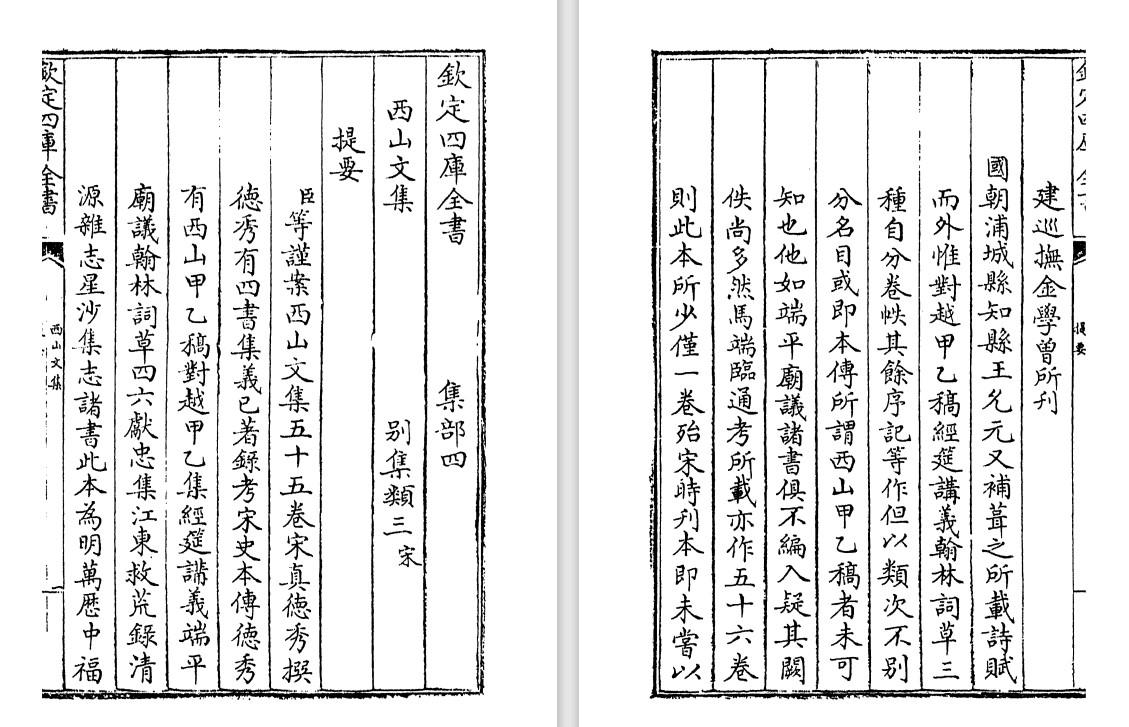 欽定四庫全書 集部四
西山文集 别集類三 宋
提要
臣等謹案西山文集五十五卷宋真徳秀撰
徳秀有四書集義已著錄考宋史本傳徳秀
有西山甲乙稿對越甲乙集經筵講義端平
廟議翰林詞草四六獻忠集江東救荒錄清
源雜志星沙集志諸書此本為明萬厯中福
欽定四庫全書
西山文集
提要
建巡撫金學曾所刋
國朝浦城縣知縣王允元又補葺之所載詩賦
而外惟對越甲乙稿經筵講義翰林詞草三
種自分卷帙其餘序記等作但以類次不别
分名目或即本傳所謂西山甲乙稿者未可
知也他如端平廟議諸書俱不編入疑其闕
佚尚多然馬端臨通考所載亦作五十六卷
則此本所少僅一卷殆宋時刋本即未嘗以